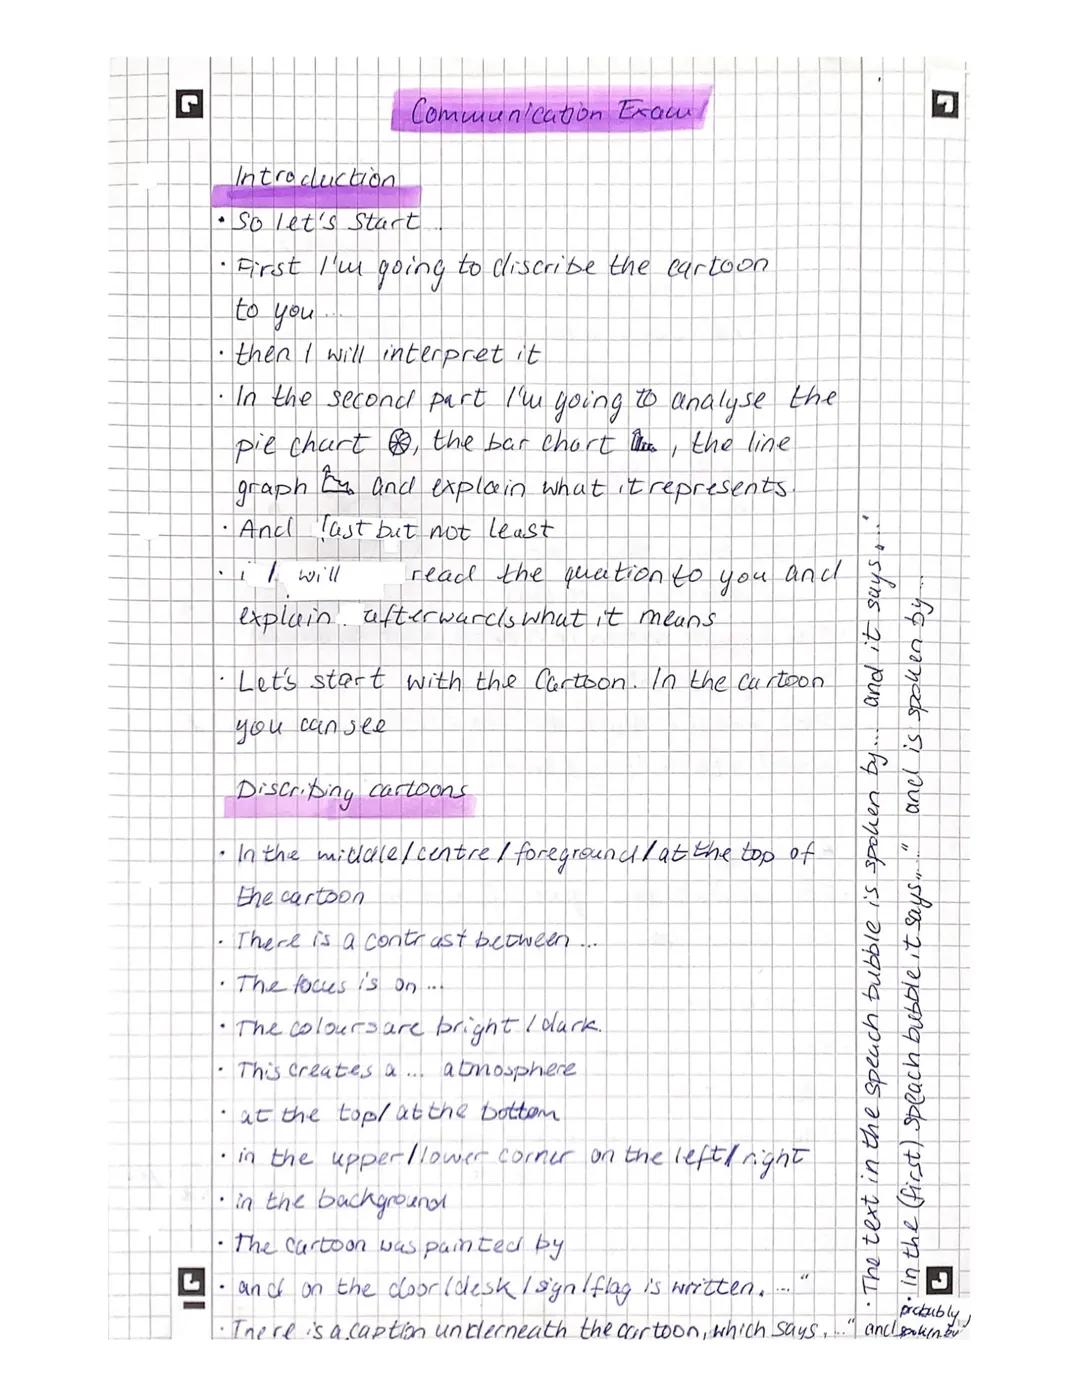 Communication Exam
Introduction
• So let's start ...
• First I'm going to discribe the cartoon
to you ...
• then I will interpret it
• In the second part I'm going to analyse the
pie chart, the bar chart, the line
graph and explain what it represents.
• And last but not least
• I will read the quetion to you and
explain afterwards what it means
• Let's start with the Cartoon. In the cartoon
you can see
Discribing cartoons
• In the middle/centre/foreground/at the top of
the cartoon
• There is a contrast between ...
• The focus is on ...
• The colours are bright/dark.
• This creates a ... atmosphere
• at the top/at the bottom
• in the upper/lower corner on the left/right
• in the background
• The cartoon was painted by
• and on the door/desk/sign/flag is written, ..."
• There is a caption underneath the cartoon, which says, ..." and probably spoken by
• The text in the speach bubble is spoken by ... and it says „ ..."
• In the (first) speach bubble it says „ ..." and is spoken by ...